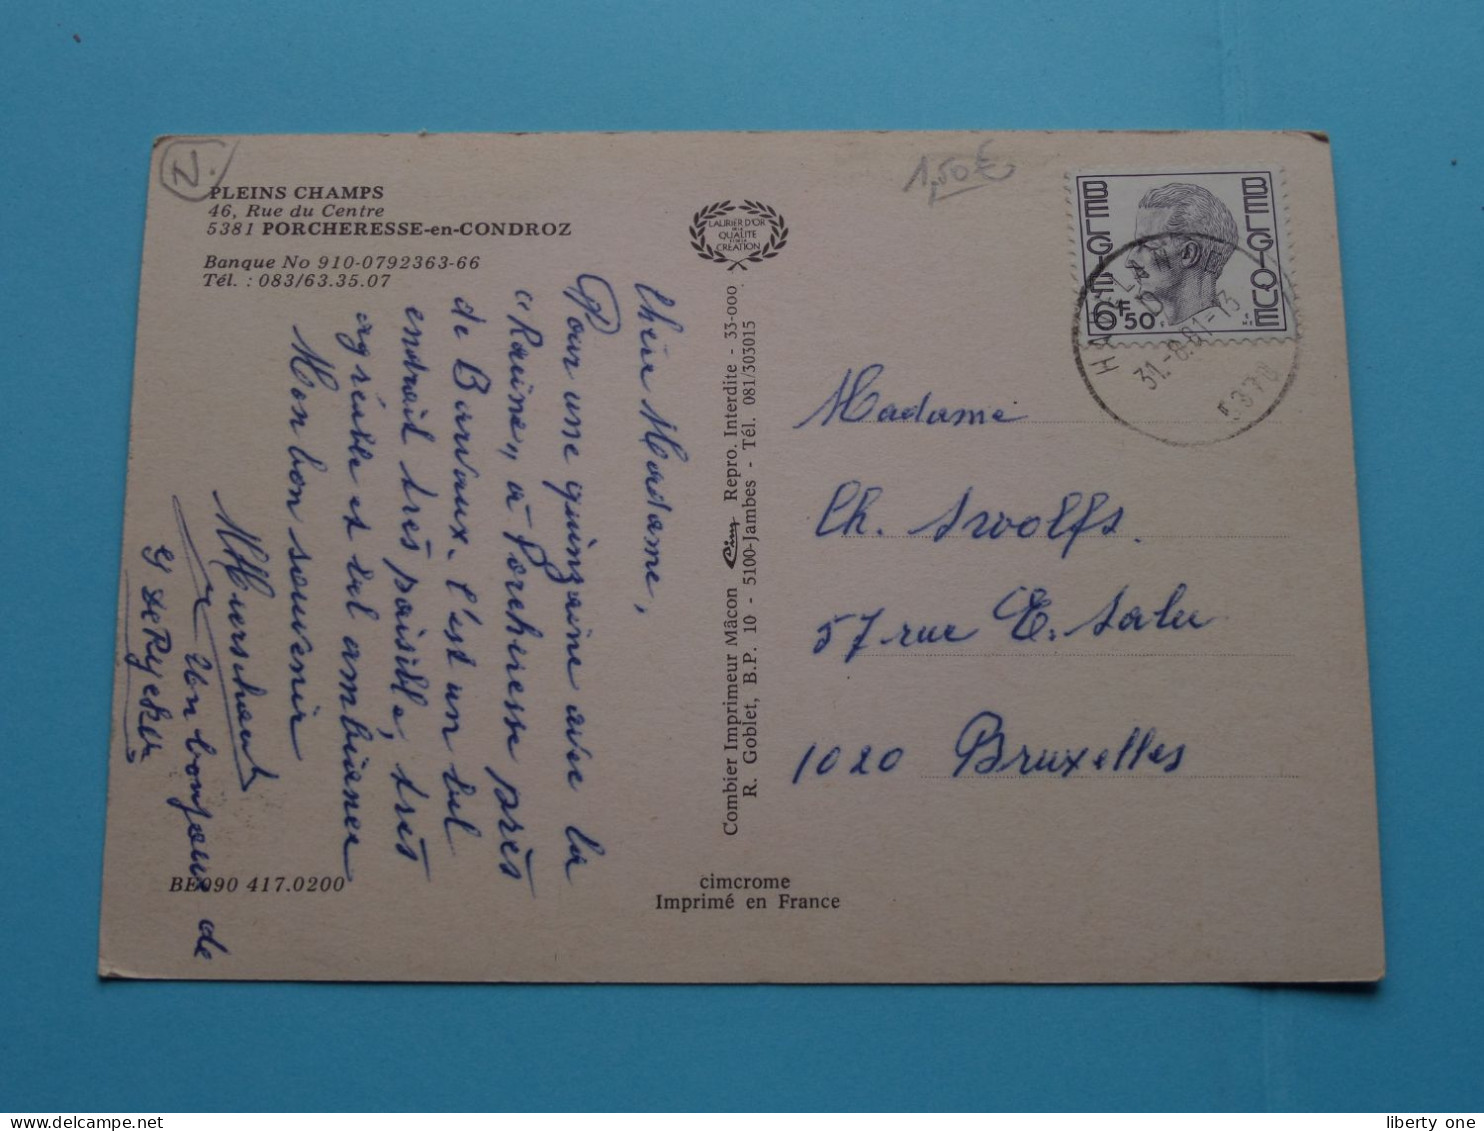 N.
PLEINS CHAMPS
46, Rue du Centre
5381 PORCHERESSE-en-CONDROZ
Banque No 910-0792363-66
Tél. : 083/63.35.07
Chère Madame,
Pour une quinzaine avec la
"Raine", à Porcheresse près
de Barvaux. C'est un bel
endroit très paisible, très
agréable et bel ambiance
Mon bon souvenir
Un bonjour de
G De Rycker
BE090 417.0200
LAURIER D'OR
DE LA
QUALITE
CREATION
Combier Imprimeur Mâcon Cim Repro. Interdite - 33-000
R. Goblet, B.P. 10 - 5100-Jambes - Tél. 081/303015
cimcrome
Imprimé en France
1,50€
BELGIE BELGIQUE
6F50
31.-8.81-13
5370
Madame
Ch. Swolfs.
57 rue E. Salu
1020 Bruxelles
liberty one